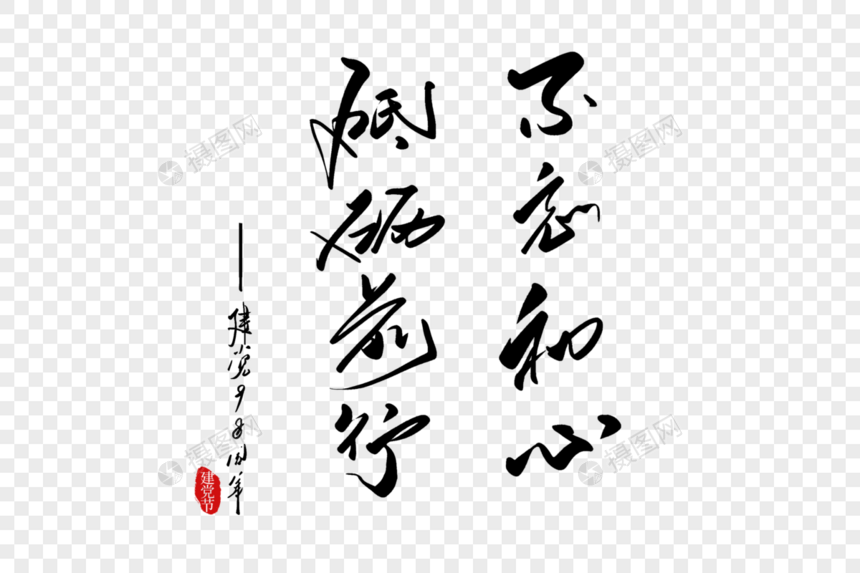 不忘初心
砥砺前行
——建党98周年
建党节
摄图网
摄图网
摄图网
摄图网